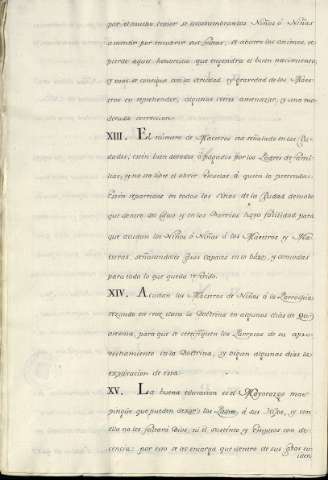 por el mucho temor se acostumbran los Niños ó Niñas
a mentir por encubrir sus faltas, se abaten los animos, se
pierde aquel honorcito que engendra el buen nacimiento,
y mas se consigue con la seriedad y gravedad de los Maes-
tros en reprehender, algunas veces amenazar, y una mo-
derada correccion.
XIII. El número de Maestros sea señalado en las Ciu-
dades, estén bien dotados ó pagados por los Padres de fami-
lias, y no sea libre el abrir Escuelas á quien lo pretenda:
Estén repartidas en todos los sitios de la Ciudad de modo
que dentro de ellas y en los Barrios haya facilidad para
que acudan los Niños ó Niñas á los Maestros y Ma-
estras, señalandoles Casas capaces en lo bajo, y comodas
para todo lo que queda referido.
XIV. Acudan los Maestros de Niños á la Parroquia
rezando en voz clara la Doctrina en algunos dias de Qua-
resma, para que se certifiquen los Parrocos de su apro-
vechamiento en la Doctrina, y oigan algunos dias la
explicacion de ésta.
XV. La buena educacion es el Mayorazgo mas
pingüe que pueden dexar los Padres á sus Hijos, y con
ella no les faltará Dios, ni el sustento y Empleos con de-
cencia: por esto se les encarga que dentro de sus Casas cui-
den